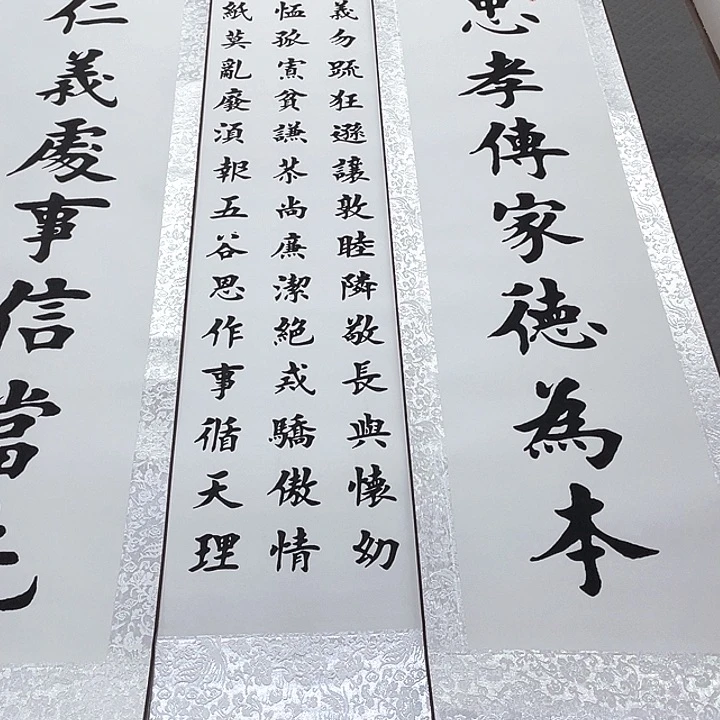 忠孝傳家徳為本
義勿踈狂遜讓敦睦隣敬長與懷幼
恤孤寡貧謙恭尚廉潔絕戒驕傲情
紙莫亂廢須報五谷恩作事循天理
仁義處事信當先